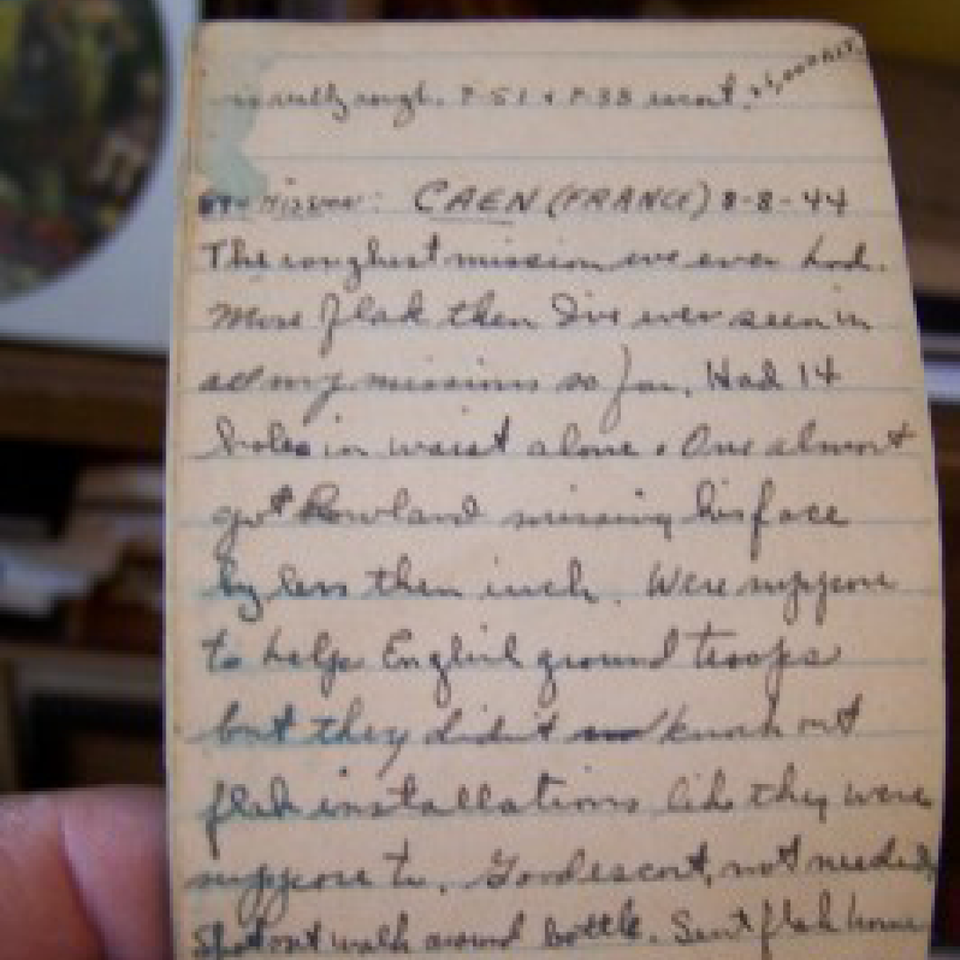 really rough. P-51 + P-38 escort. 26,000 FT.
Mission: CAEN (FRANCE) 8-8-44
The roughest mission we ever had.
More flak then I've ever seen in
all my missions so far. Had 14
holes in waist alone. One almost
got Rowland missing his face
by less then inch. Were suppose
to help English ground troops
but they didn't knock out
flak installations like they were
suppose to. Good escort, not needed.
Shot out walk around bottle. Sent flak home